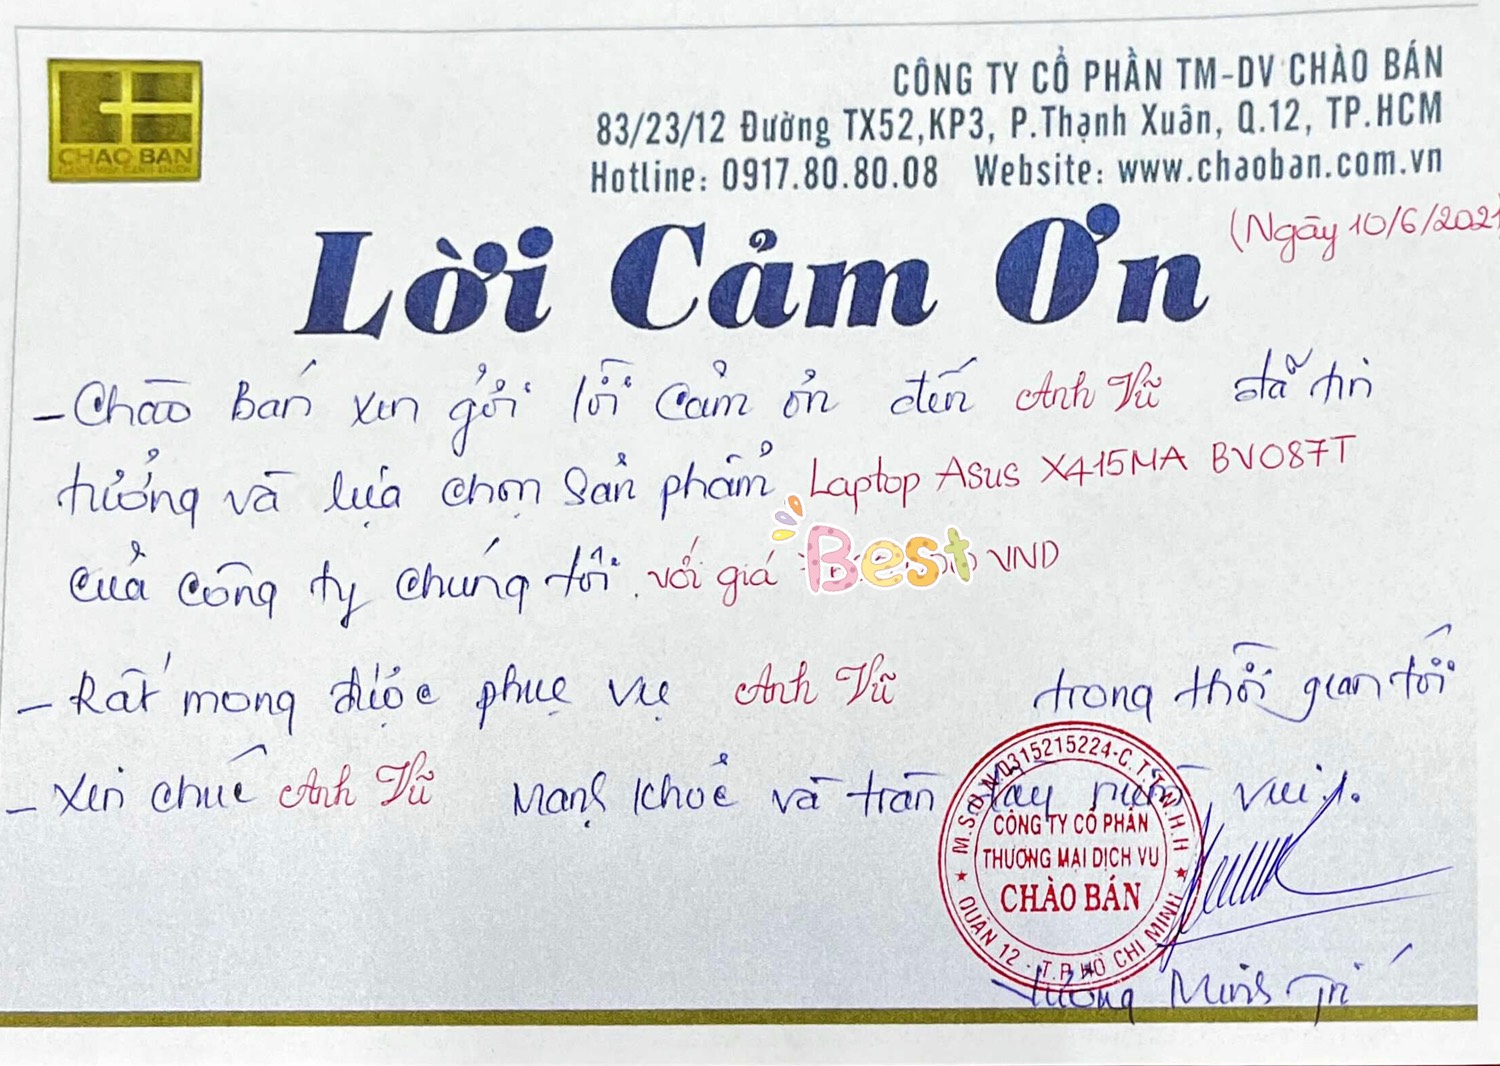 CHAO BAN
CÔNG TY CỔ PHẦN TM-DV CHÀO BÁN
83/23/12 Đường TX52,KP3, P.Thạnh Xuân, Q.12, TP.HCM
Hotline: 0917.80.80.08 Website: www.chaoban.com.vn
(Ngày 10/6/2021)
Lời Cảm Ơn
- Chào Bán xin gửi lời cảm ơn đến Anh Vũ đã tin
tưởng và lựa chọn sản phẩm Laptop Asus X415MA BV087T
của công ty chúng tôi. với giá Best VND
- Rất mong được phục vụ Anh Vũ trong thời gian tới
- Xin chúc Anh Vũ mạnh khoẻ và tràn đầy niềm vui.
M.S.D.N:0315215224-C.T.T.N.H.H
CÔNG TY CỔ PHẦN
THƯƠNG MẠI DỊCH VỤ
CHÀO BÁN
QUẬN 12 - T.P HỒ CHÍ MINH
Minh Trí